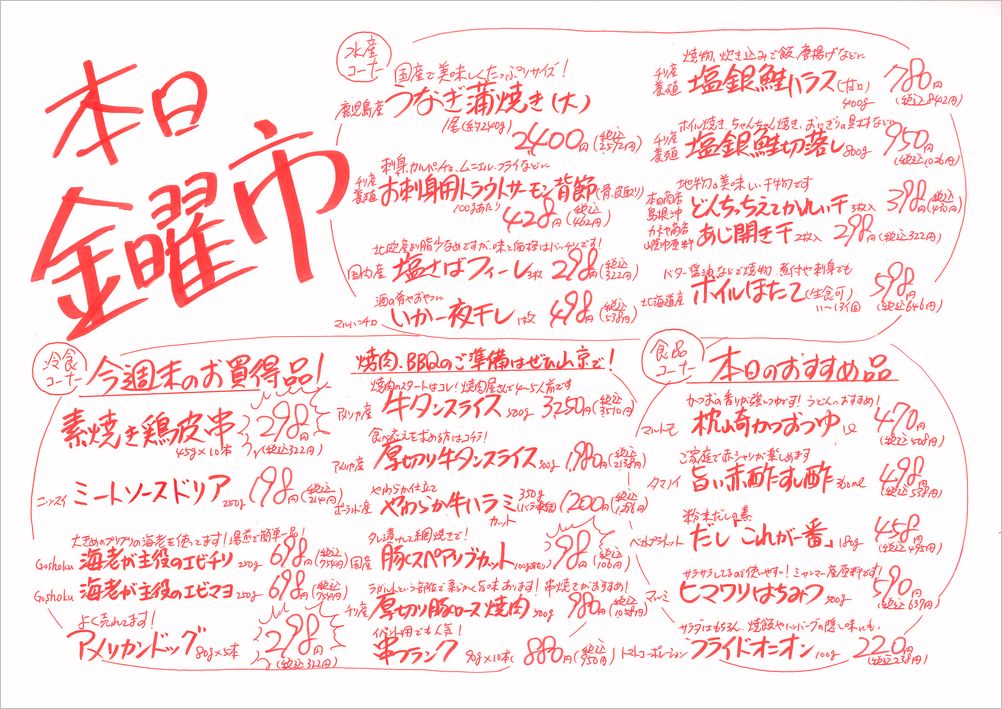 本日
金曜市
水産コーナー
国産で美味しくたっぷりサイズ!
鹿児島産 うなぎ蒲焼き(大)
1尾(約240g)
2400円(税込2592円)
刺身、カルパッチョ、ムニエル、フライなどに
チリ産養殖 お刺身用トラウトサーモン背節(骨、皮取り)
100gあたり 428円(税込462円)
北欧産より脂少なめですが、味と価格はバッチシです!
国内産 塩さばフィーレ 3枚 298円(税込322円)
酒の肴やおやつに
マルハニチロ いか一夜干し 1枚 498円(税込538円)
焼物、炊き込みご飯、唐揚げなどに
チリ産養殖 塩銀鮭ハラス(甘口) 400g 780円(税込842円)
ホイル焼き、ちゃんちゃん焼き、おにぎりの具材などに
チリ産養殖 塩銀鮭切落し 800g 950円(税込1026円)
地物の美味しい干物です
島根沖 どんちっちえてかれい干 3枚入 398円(税込430円)
あじ開き干 2枚入 298円(税込322円)
バター醤油などで焼物、煮付や刺身でも
北海道産 ボイルほたて(生食可) 598円(税込646円)
冷食コーナー
今週末のお買得品!
素焼き鶏皮串 298円
45g×10本 (税込322円)
ニッスイ ミートソースドリア 250g 198円(税込214円)
大きめのプリプリの海老を使ってます!湯煎で簡単一品!
Goshoku 海老が主役のエビチリ 250g 698円(税込754円)
Goshoku 海老が主役のエビマヨ 250g 698円(税込754円)
よく売れてます!
アメリカンドッグ 80g×5本 298円(税込322円)
焼肉、BBQのご準備はぜひ山京で!
焼肉のスタートはコレ!焼肉屋さんで4〜5人前です
アメリカ産 牛タンスライス 500g 3250円(税込3510円)
食べ応えを求める方はコチラ!
アメリカ産 厚切り牛タンスライス 300g 1980円(税込2138円)
やわらか仕立て
ポーランド産 やわらか牛ハラミカット 350g(バラ凍結) 1200円(税込1296円)
タレに漬けて網焼きで!
国産 豚スペアリブカット 100gあたり 98円(税込106円)
ラムルトという部位で柔らかく旨味あります!串焼きがおすすめ!
チリ産 厚切り豚ロース焼肉 500g 980円(税込1058円)
イベント用でも人気!
串フランク 90g×10本 880円(税込950円)
食品コーナー
本日のおすすめ品
かつおの香りが強いつゆです!うどんにおすすめ!
マルトモ 枕崎かつおつゆ 1L 470円(税込508円)
ご家庭で赤シャリが楽しめます
タマノイ 旨い赤酢すし酢 360ml 498円(税込538円)
粉末だしの素
ベストプラネット だし「これが一番」 180g 458円(税込495円)
サラサラしてるので使いやすい!ミャンマー産原料です!
マルミ ヒマワリはちみつ 500g 590円(税込637円)
サラダはもちろん、焼飯やハンバーグの隠し味にも。
トマトコーポレーション フライドオニオン 100g 220円(税込238円)